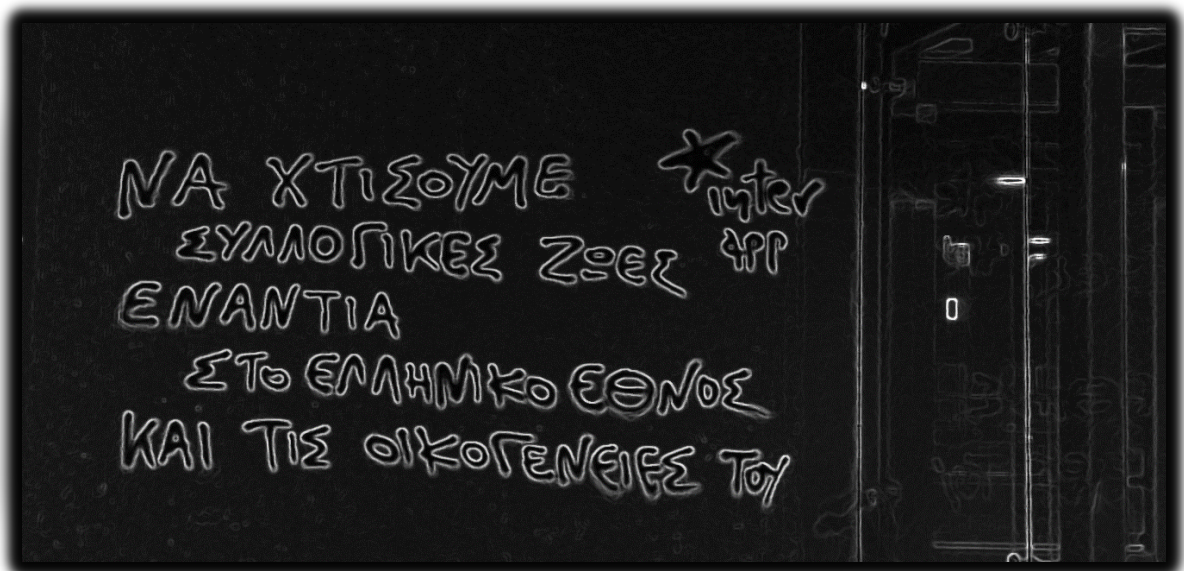 ΝΑ ΧΤΙΣΟΥΜΕ
ΣΥΛΛΟΓΙΚΕΣ ΖΩΕΣ
ΕΝΑΝΤΙΑ
ΣΤΟ ΕΛΛΗΝΙΚΟ ΕΘΝΟΣ
ΚΑΙ ΤΙΣ ΟΙΚΟΓΕΝΕΙΕΣ ΤΟΥ
inter